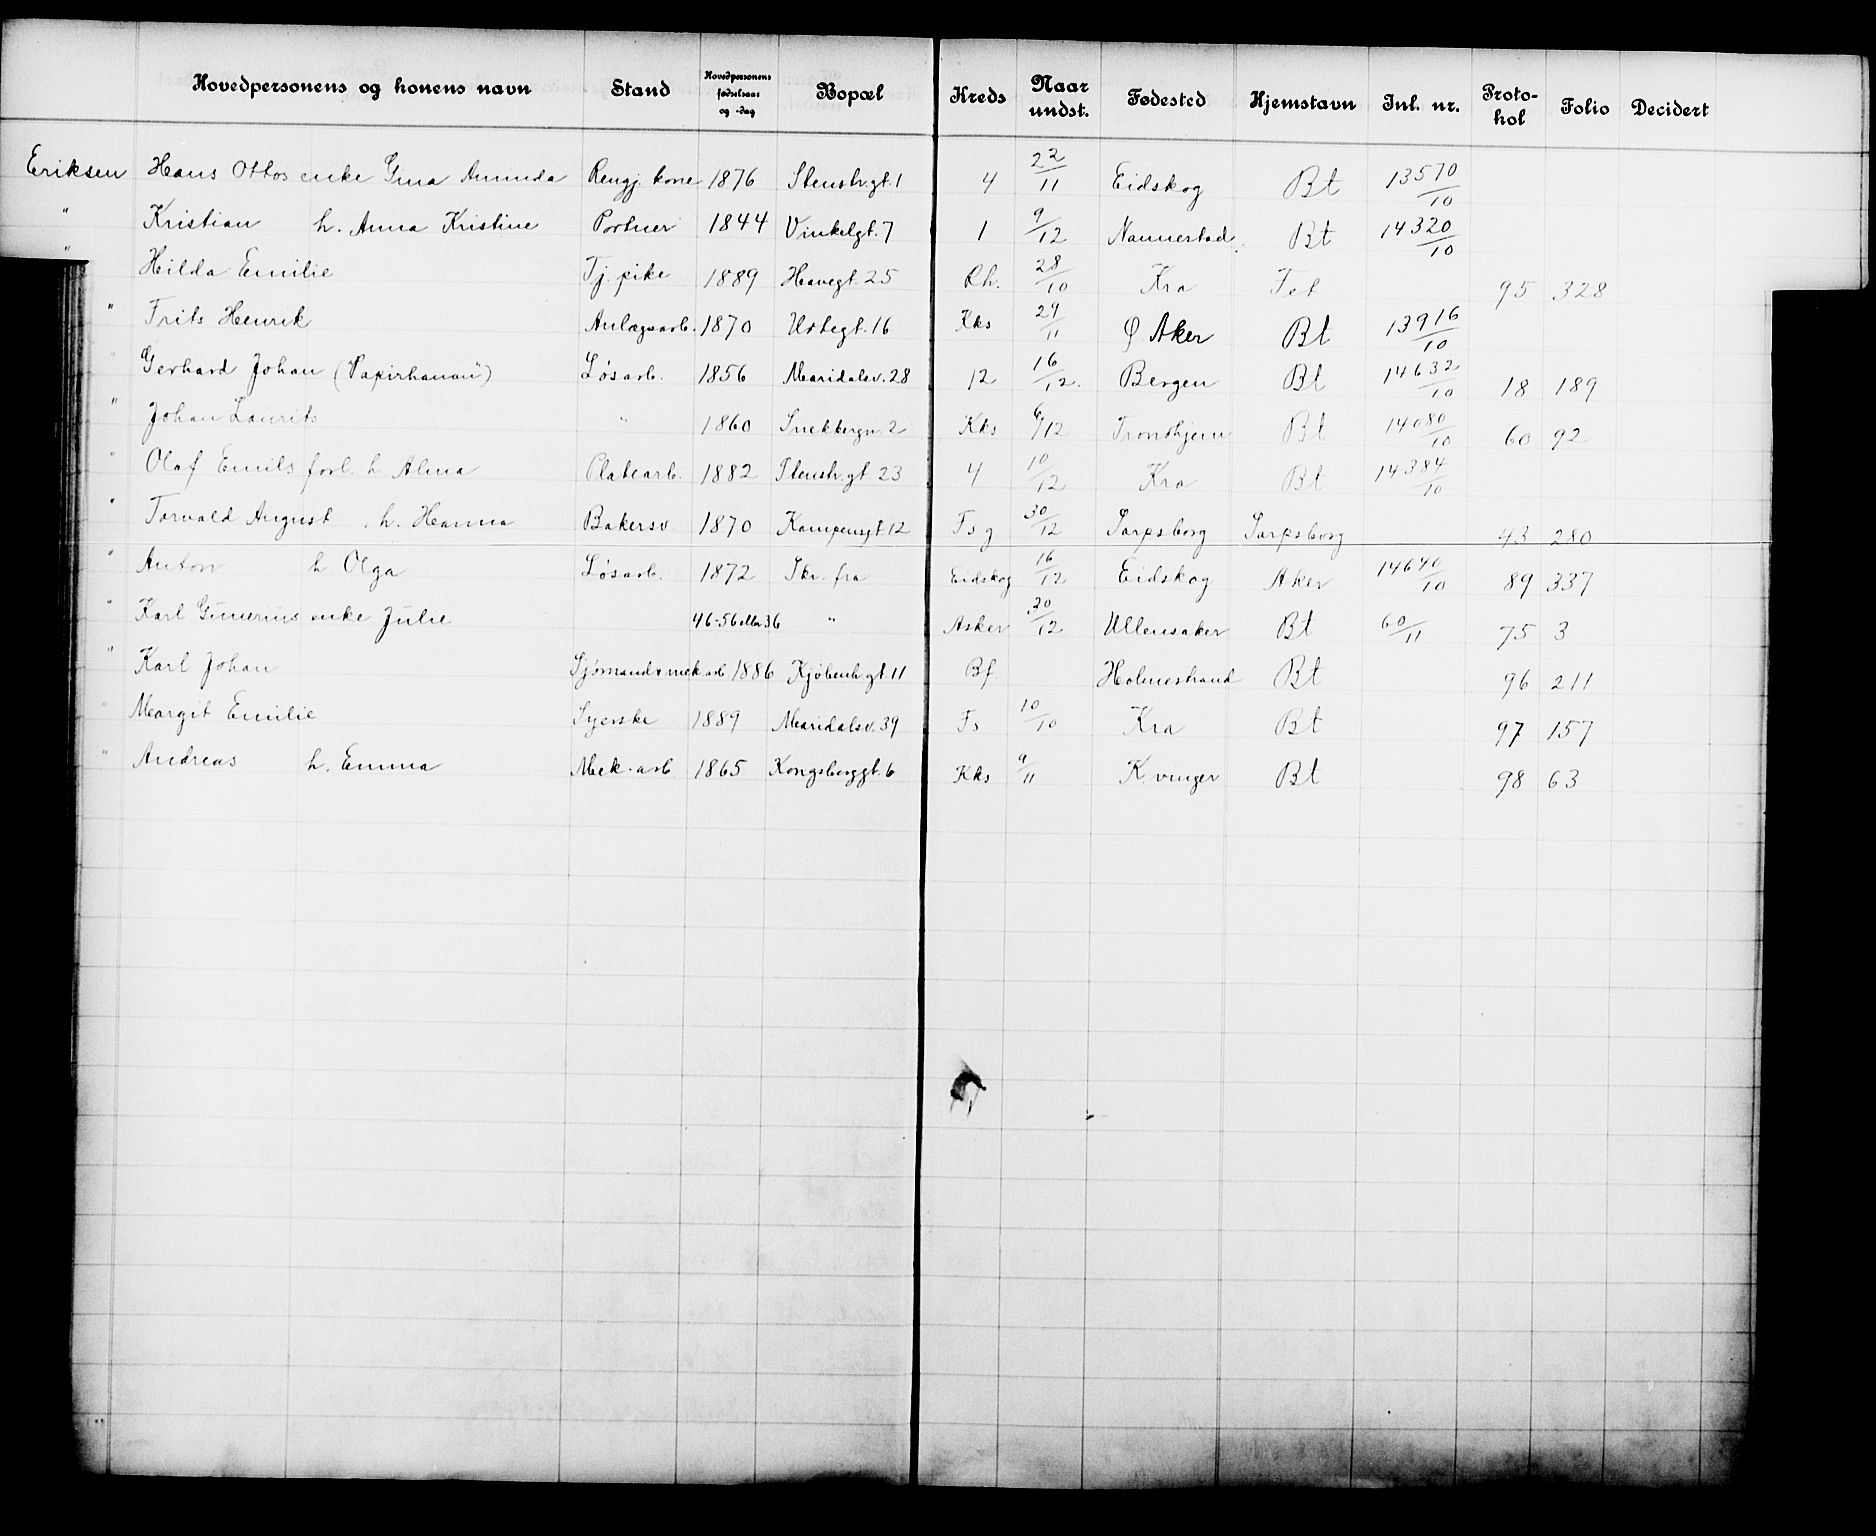 Hovedpersonens og konens navn Stand Hovedpersonens fødselsaar og -dag Bopæl Kreds Naar undst. Fødested Hjemstavn Inl. nr. Proto-kol Folio Decidert
Eriksen Hans Ottos enke Gina Amunda Rengj. kone 1876 Stenstr.gt. 1 4 22/11 Eidskog Bt 13570/10
" Kristian h. Anna Kristine Portner 1844 Vinkelgt. 7 1 9/12 Nannestad Bt 14320/10
" Hilda Emilie Tj. pike 1889 Havegt. 25 Rh. 28/10 Kra Fet 95 328
" Frits Henrik Anlægsarb. 1870 Urtegt. 16 Kks 29/11 Ø Aker Bt 13916/10
" Gerhard Johan Løsarb. 1856 Maridalsv. 28 12 16/12. Bergen Bt 14632/10 18 189
" Johan Laurits " 1860 Snekkergn. 2 Kks 6/12 Tronhjem Bt 14080/10 60 92
" Olaf Emils forl. h Alma Platearb. 1882 Stenstr.gt. 23 4 10/12 Kra Bt 14384/10
" Torvald August h. Hanna Bakersv 1870 Kampensgt. 12 Fsg 30/12 Sarpsborg Sarpsborg 43 280
" Anton h Olga Løsarb. 1872 Skr. fra Eidskog 16/12 Eidskog Aker 14640/10 89 337
" Karl Gunerius enke Julie 46-56 eller 36 " Asker 30/12 Ullensaker Bt 60/11 75 3
" Karl Johan Sjømand & mek arb 1886 Kjøbenh.gt. 11 Bf. Holmestrand Bt 96 211
" Margit Emilie Syerske 1889 Maridalsv. 39 Fs 10/10 Kra Bt 97 157
" Andreas h. Emma Mek. arb 1865 Kongsberggt. 6 Kks 9/11 K.vinger Bt 98 63